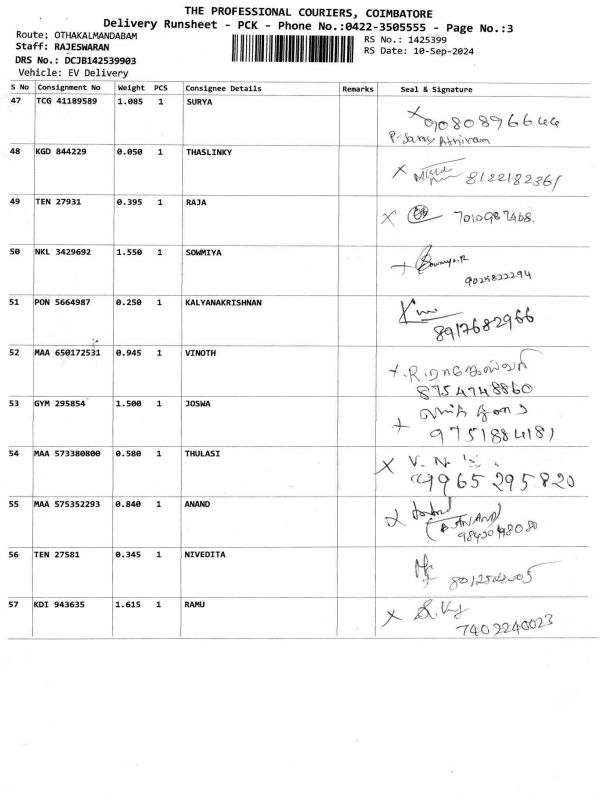 THE PROFESSIONAL COURIERS, COIMBATORE
Delivery Runsheet - PCK - Phone No.:0422-3505555 - Page No.:3
Route: OTHAKALMANDABAM
Staff: RAJESWARAN
DRS No.: DCJB142539903
Vehicle: EV Delivery
RS No.: 1425399
RS Date: 10-Sep-2024
S No Consignment No Weight PCS Consignee Details Remarks Seal & Signature
47 TCG 41189589 1.085 1 SURYA
48 KGD 844229 0.050 1 THASLINKY
8122182361
49 TEN 27931 0.395 1 RAJA
7010987468.
50 NKL 3429692 1.550 1 SOWMIYA
Sowmiya.R
9025822294
51 PON 5664987 0.250 1 KALYANAKRISHNAN
8917682966
52 MAA 650172531 0.945 1 VINOTH
8754748860
53 GYM 295854 1.500 1 JOSWA
9751884181
54 MAA 573380800 0.580 1 THULASI
V. N.
9965295820
55 MAA 575352293 0.840 1 ANAND
(B.ANAND)
56 TEN 27581 0.345 1 NIVEDITA
57 KDI 943635 1.615 1 RAMU
7402240023